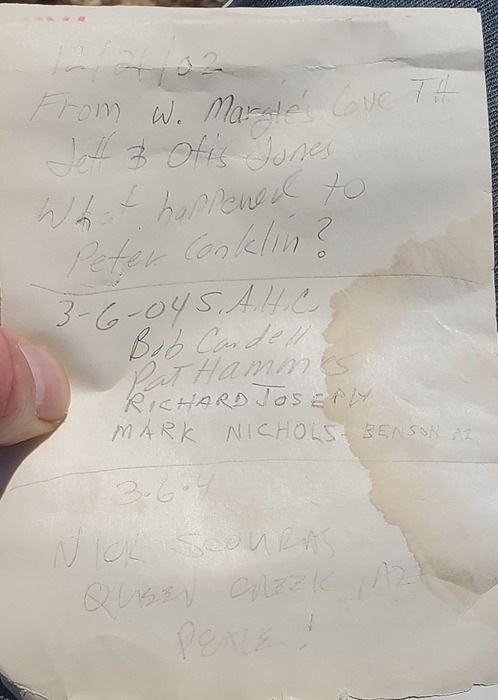 12/21/02
From W. Margie's Cove TH
Jeff & Otis Jones
What happened to
Peter Conklin?
3-6-04 S.A.H.C.
Bob Cardell
Pat Hammes
RICHARD JOSEPH
MARK NICHOLS - BENSON AZ
3.6.4
NICK SCOURAS
QUEEN CREEK, AZ
PEACE!